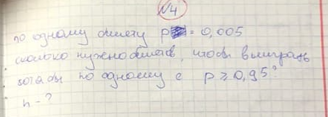 №4
по одному билету p = 0,005
сколько нужно билетов, чтобы выиграть
хотя бы по одному с p ≥ 0,95?
n - ?